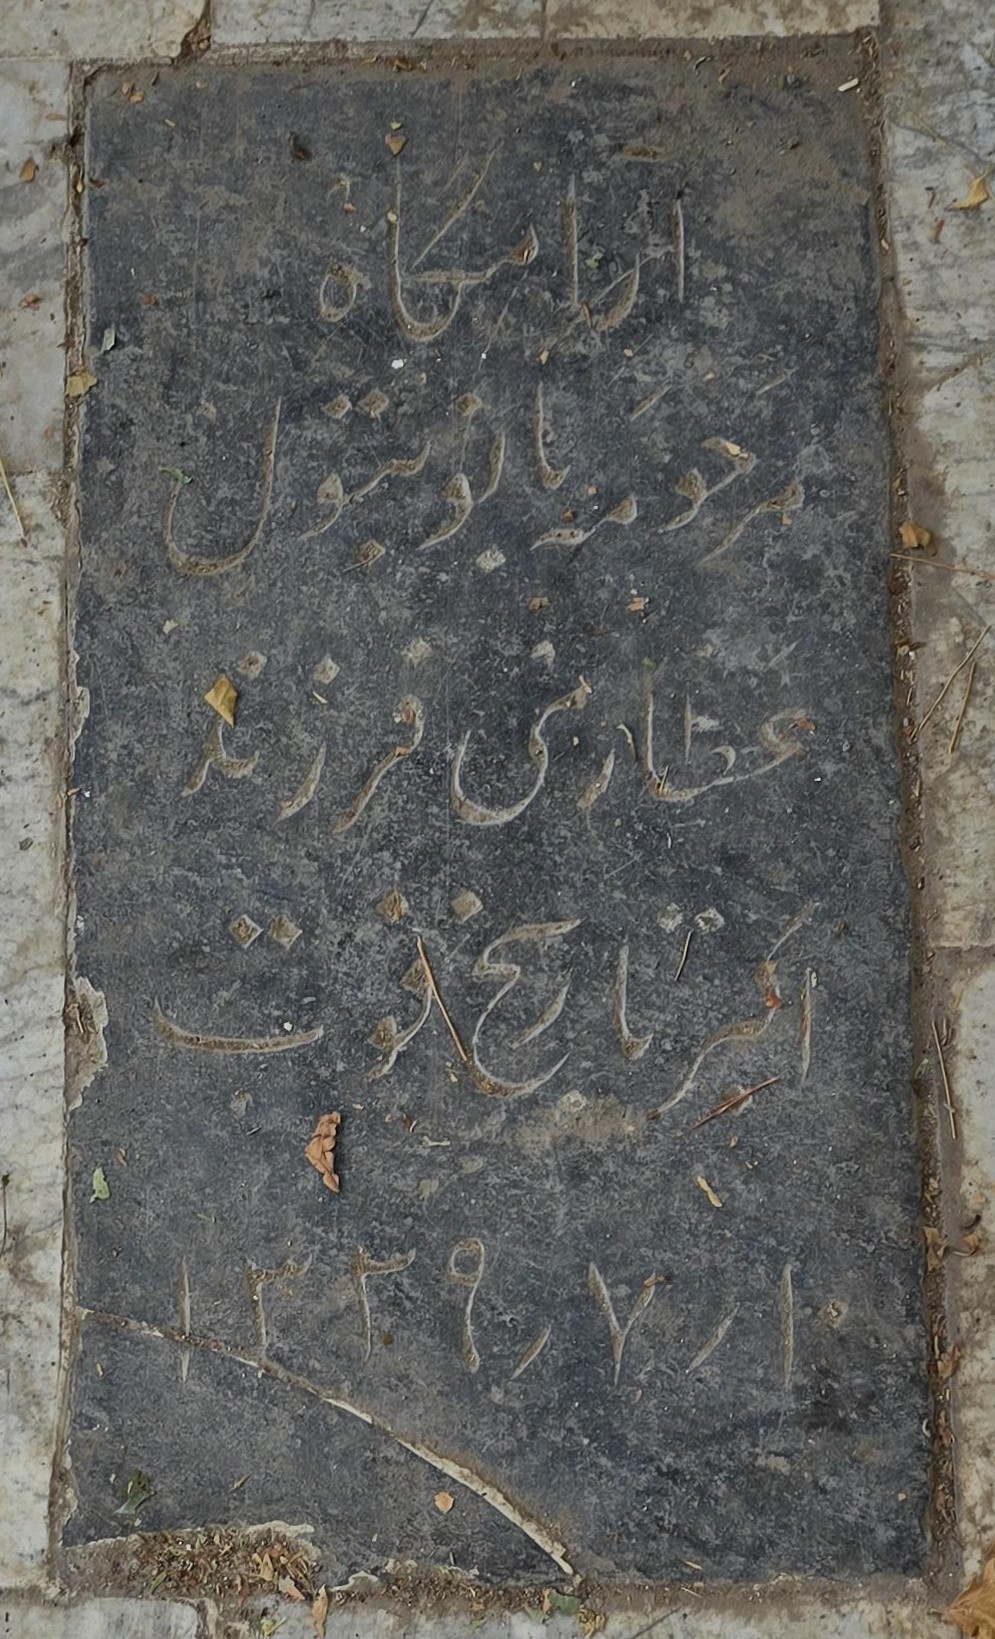 آرامگاه
مرحومه بانو بتول
عطاری فرزند
اکبر تاریخ فوت
۱۳۲۹/۷/۱۰